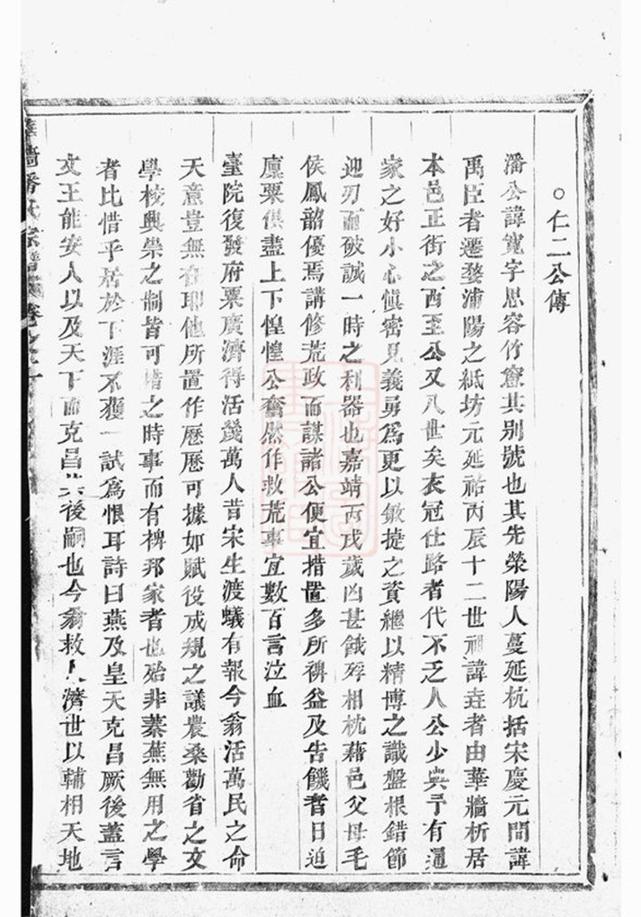 ○仁二公傳
潘公諱寬字思容竹窻其別號也其先滎陽人蔓延杭括宋慶元間諱
禹臣者遷婺浦陽之紙坊元延祐丙辰十二世祖諱垚者由華牆析居
本邑正街之西至公又八世矣衣冠仕路者代不乏人公少與予有通
家之好小心慎密見義勇為更以敏捷之資繼以精博之識盤根錯節
迎刃而破誠一時之利器也嘉靖丙戌歲凶甚餓殍相枕藉邑父母毛
侯鳳韶優焉講修荒政而謀諸公便宜措置多所裨益及告饑者日迫
廩粟俱盡上下惶惶公奮然作救荒事宜數百言泣血
臺院復發府粟廣濟得活幾萬人昔宋生渡蟻有報今翁活萬民之命
天意豈無在耶他所置作歷歷可據如賦役成規之議農桑勸省之文
學校興崇之制皆可措之時事而有裨邦家者也殆非蓁蕪無用之學
者比惜乎居於下涯不獲一試為恨耳詩曰燕及皇天克昌厥後蓋言
文王能安人以及天下而克昌其後嗣也今翁救人濟世以輔相天地
華牆潘氏宗譜 卷之